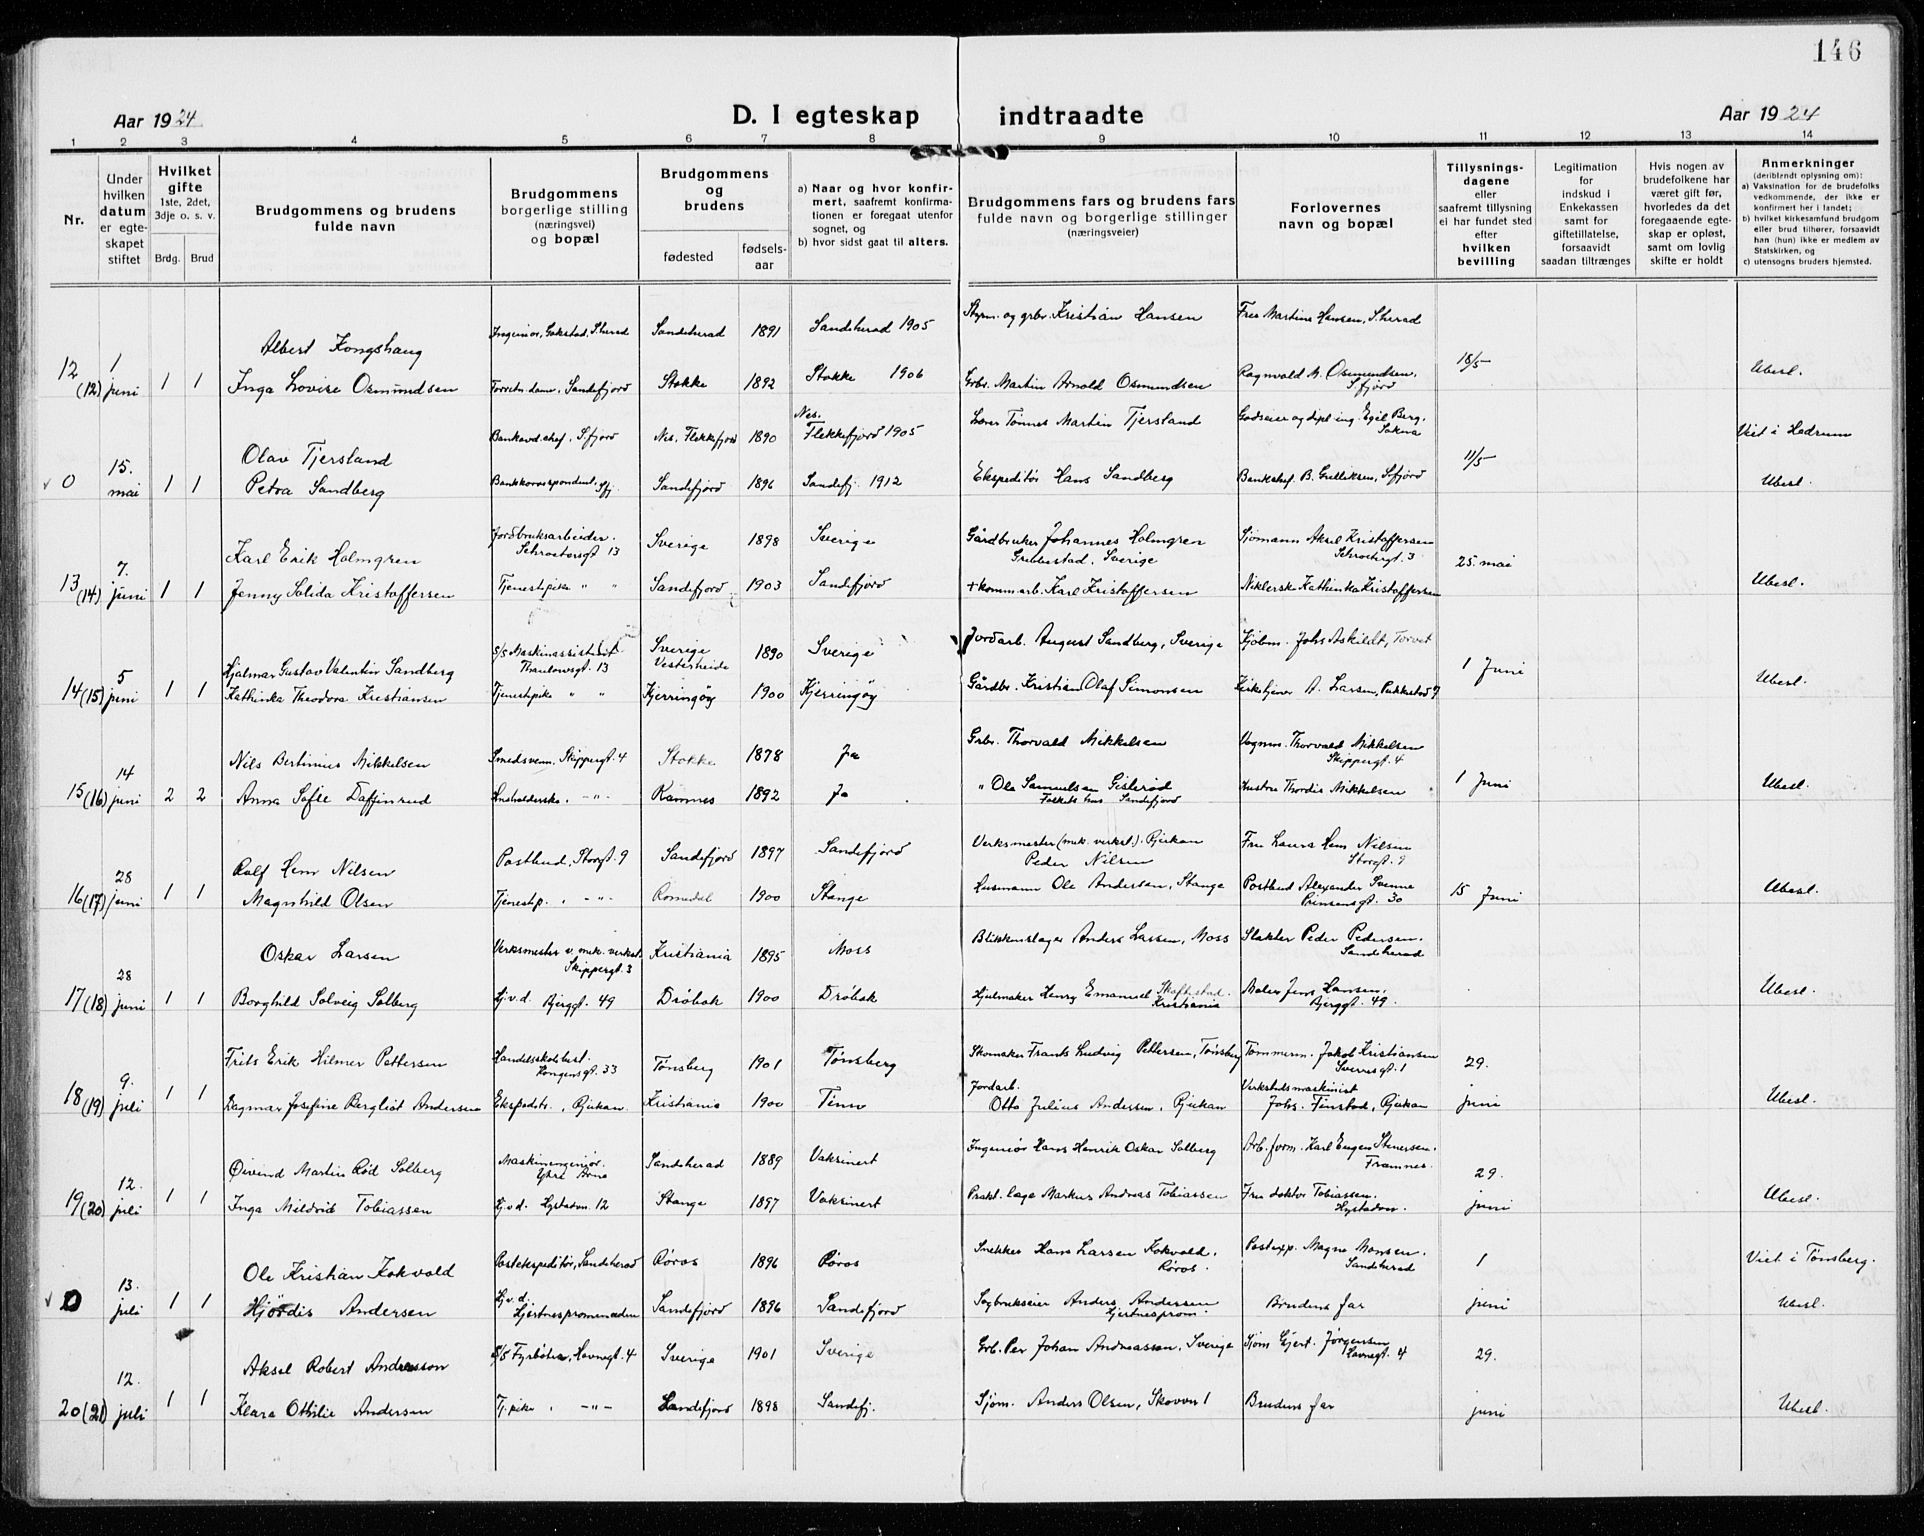 146
Aar 1924
D. I egteskap indtraadte
Aar 1924
1 2 3 4 5 6 7 8 9 10 11 12 13 14
Nr.
Under hvilken datum er egteskapet stiftet
Hvilket gifte 1ste, 2det, 3dje o. s. v.
Brdg. Brud
Brudgommens og brudens fulde navn
Brudgommens borgerlige stilling (næringsvei) og bopæl
Brudgommens og brudens
fødested
fødsels-aar
a) Naar og hvor konfirmert, saafremt konfirmationen er foregaat utenfor sognet, og
b) hvor sidst gaat til alters.
Brudgommens fars og brudens fars fulde navn og borgerlige stillinger (næringsveier)
Forlovernes navn og bopæl
Tillysningsdagene eller saafremt tillysning ei har fundet sted efter hvilken bevilling
Legitimation for indskud i Enkekassen samt for giftetillatelse, forsaavidt saadan tiltrænges
Hvis nogen av brudefolkene har været gift før, hvorledes da det foregaaende egteskap er opløst, samt om lovlig skifte er holdt
Anmerkninger (deriblendt oplysning om):
a) Vaksination for de brudefolks vedkommende, der ikke er konfirmert her i landet;
b) hvilket kirkesamfund brudgom eller brud tilhører, forsaavidt han (hun) ikke er medlem av Statskirken, og
c) utensogns bruders hjemsted.
Albert Kongshaug Ingeniør, Gokstad, S.herad Sandeherad 1891 Sandeherad 1905 Styrm. og grbr. Kristian Hansen Fru Martine Hansen, S.herad
12 (12) 1 juni 1 1 Inga Lovise Osmundsen Forretn.dame, Sandefjord Stokke 1892 Stokke 1906 Grbr. Martin Arnold Osmundsen Ragnvald M. Osmundsen, S.fjord 18/5 Ubesl.
Olav Tjersland Bankavd.chef, S.fjord Nes, Flekkefjord 1890 Nes. Flekkefjord 1905 Lærer Tønnes Martin Tjersland Godseier og dipl. ing. Egil Berg, Sakna Viet i Hedrum
0 15. mai 1 1 Petra Sandberg Bankkorrespondent, Sfj. Sandefjord 1896 Sandefj. 1912 Ekspeditør Hans Sandberg Bankchef B. Gulliksen, S.fjord 11/5 Ubesl.
Karl Erik Holmgren Jordbruksarbeider. Schrøtersgt 13 Sverige 1898 Sverige Gårdbruker Johannes Holmgren Grebbestad, Sverige Sjömann Aksel Kristoffersen
13 (14) 7. juni 1 1 Jenny Solida Kristoffersen Tjenestepike " " Sandefjord 1903 Sandefjord + komm.arb. Karl Kristoffersen Kathinka Kristoffersen 25. mai Ubesl.
Hjalmar Gustav Valentin Sandberg S/S Maskinassistent Thaulowsgt. 13 Sverige Vesterheide 1890 Sverige Jordarb. August Sandberg, Sverige Kjøbm. Johs Askildt, Torvet
14 (15) 5 juni 1 1 Kathinka Theodora Kristiansen Tjenestepike " " Kjerringöy 1900 Kjerringöy Gårdbr. Kristian Olaf Simonsen Kirketjener A. Larsen, Pukkestad 7 1 Juni Ubesl.
Nils Bertinius Mikkelsen Smedsvenn, Skippergt. 4 Stokke 1878 Ja Grbr. Thorvald Mikkelsen Vognm. Thorvald Mikkelsen Skippergt. 4
15 (16) 14 juni 2 2 Anna Sofie Daffinrud Husholderske " - " - Ramnes 1892 Ja " Ole Samuelsen Gislerød Folkets hus Sandefjord Hustru Thordis Mikkelsen 1 Juni Ubesl.
Rolf Hem Nilsen Postbud, Storgt. 9 Sandefjord 1897 Sandefjord Verksmester (mek. verkst.) Rjukan Peder Nilsen Fru Laura Hem Nilsen Storgt. 9
16 (17) 28 juni 1 1 Magnhild Olsen Tjenestp. " - " - Romedal 1900 Stange Husmann Ole Andersen, Stange Postbud Alexander Svenne Prinsensgt. 30 15 Juni Ubesl.
Oskar Larsen Verksmester v. mek. verkst. Skippergt. 3 Kristiania 1895 Moss Blikkenslager Anders Larsen, Moss Slakter Peder Pedersen. Sandeherad
17 (18) 28 juni 1 1 Borghild Solveig Solberg Hj.v.d. Bjerggt. 49 Drøbak 1900 Drøbak Hjulmaker Henry Emanuel Skaftestad. Kristiania Maler Jens Hansen, Bjerggt. 49. Ubesl.
Frits Erik Hilmer Pettersen Handelsskolebest. Kongensgt. 33 Tønsberg 1901 Tønsberg Skomaker Frants Ludvig Pettersen, Tønsberg Tømmerm. Jakob Kristiansen Sverresgt. 1
18 (19) 9. juli 1 1 Dagmar Josefine Bergliot Andersen Ekspedtr., Rjukan. Kristiania 1900 Tinn Jordarb. Otto Julius Andersen, Rjukan Verkstedsmaskinist Johs. Finstad, Rjukan 29. juni Ubesl.
Øivind Martin Rød Solberg Maskiningeniør. Ytre Arna Sandeherad 1889 Vaksinert Ingeniør Hans Henrik Oskar Solberg Arb.form. Karl Eugen Stenersen. Framnes.
19 (20) 12. juli 1 1 Inga Mildrid Tobiassen Hj.v.d. Hystadvn. 12 Stange 1897 Vaksinert Prakt. læge Markus Andreas Tobiassen Fru doktor Tobiassen. Hystadvn. 29. juni Ubesl.
Ole Kristian Kokvold Postekspeditør, Sandeherad Røros 1896 Røros Snekker Hans Larsen Kokvold. Røros. Postexp. Magne Monsen. Sandeherad Viet i Tønsberg.
0 13. juli 1 1 Hjördis Andersen Hj.v.d. Hjertnespromenaden Sandefjord 1896 Sandefjord Sagbrukseier Anders Andersen Hjertnesprom. Brudens far 1 juni Ubesl.
Aksel Robert Andreasson S/S Fyrbøter, Havnegt. 4 Sverige 1901 Sverige Grb. Per Johan Andreasson, Sverige Sjøm Gjert Jørgensen Havnegt. 4
20 (21) 12. juli 1 1 Klara Othilie Andersen Tj.pike " - " - Sandefjord 1898 Sandefj. Sjøm. Anders Olsen, Skovvn 1 Brudens far 29. juni Ubesl.